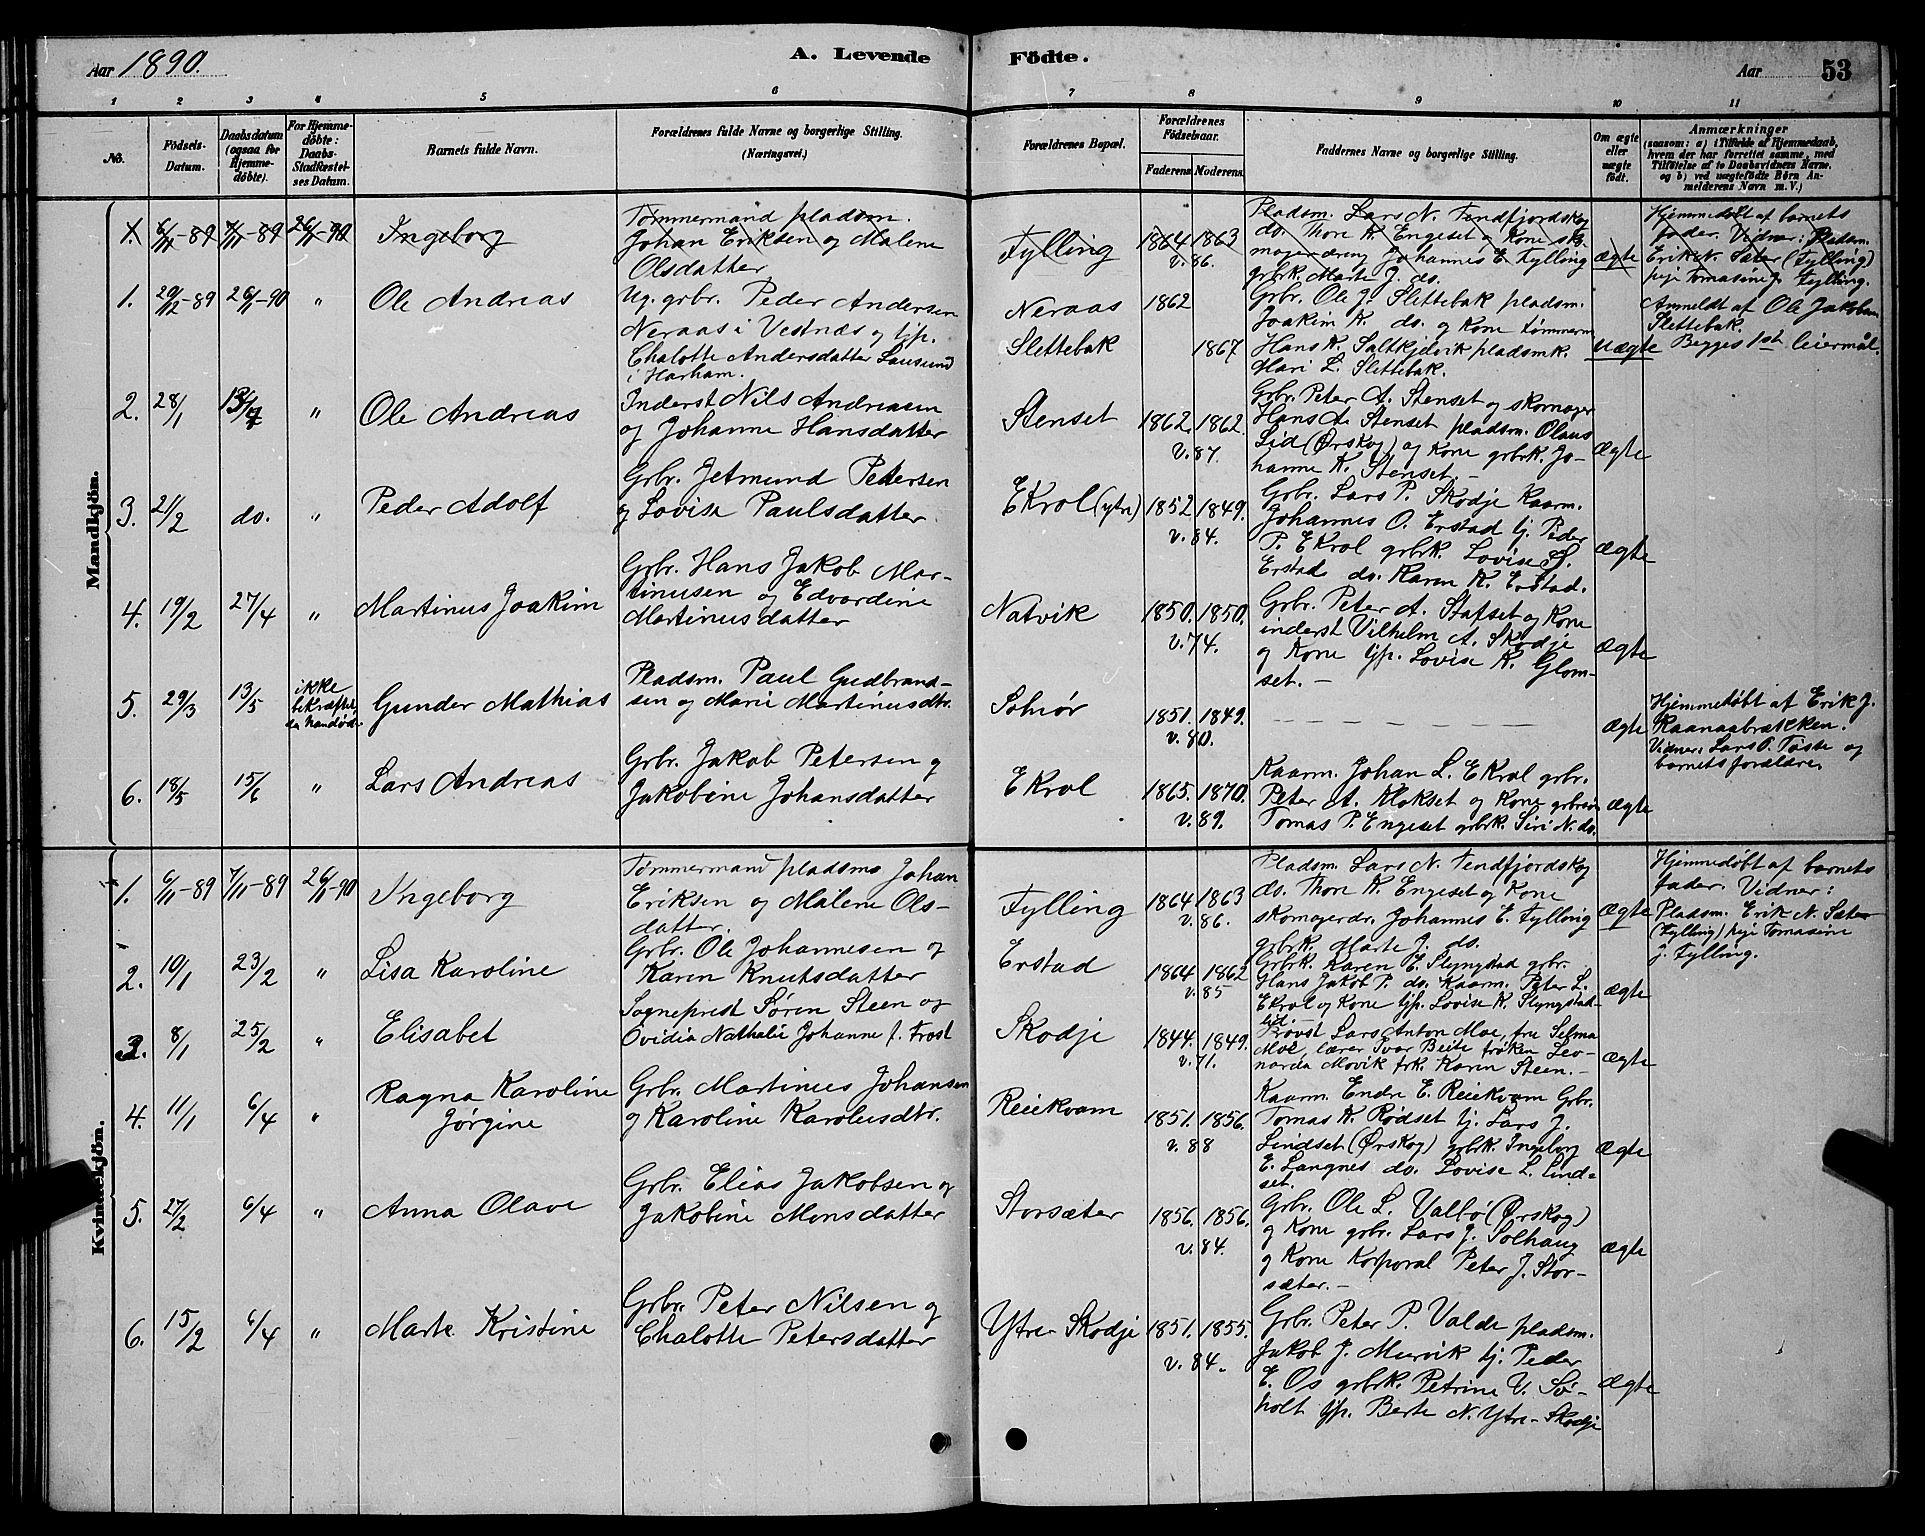 Aar 1890.
A. Levende Födte.
Aar 53
1 2 3 4 5 6 7 8 9 10 11
No.
Födsels-Datum.
Daabsdatum (ogsaa for Hjemme-döbte).
For Hjemme-döbte: Daabs-Stadfæstel-ses Datum.
Barnets fulde Navn.
Forældrenes fulde Navne og borgerlige Stilling. (Næringsvei.)
Forældrenes Bopæl.
Forældrenes Födselsaar.
Faderens. Moderens.
Faddernes Navne og borgerlige Stilling.
Om ægte eller uægte födt.
Anmærkninger
(saasom: a) i Tilfælde af Hjemmedaab, hvem der har forrettet samme, med Tilföielse af to Daabsvidners Navne. og b) ved uægtefödte Börn An-melderens Navn m. V.)
Mandkjön.
1. 6/11-89 7/11-89 26/1-90 Ingeborg
Tømmermand pladsm.
Johan Eriksen og Malene
Olsdatter
Fylling 1864 1863
v. 86.
Pladsm. Lars N. Tendfjordskog
do. Thore K. Engeset og Kone sko-
magerdreng Johannes E. Fylling
grbrk. Marte J. do.
ægte
Hjemmedøbt af barnets
fader. Vidner: Pladsm.
Erik N. Sæter (Fylling)
pige Tomasine J. Fylling.
1. 29/12-89 26/1-90 " Ole Andreas
Ug. grbr. Peder Andersen
Neraas i Vestnæs og tjp.
Chalotte Andersdatter Lausund
i Harham.
Neraas 1862
Slettebak 1867
Grbr. Ole J. Slettebak pladsm.
Joakim K. do. og Kone tømmerm
Hans K. Saltkjelvik pladsmk.
Mari L. Slettebak.
uægte
Anmeldt af Ole Jakobsen
Slettebak.
Begges 1ste leiermål.
2. 28/1 13/4 " Ole Andreas
Inderst Nils Andreasen
og Johanne Hansdatter
Stenset 1862. 1862.
v. 87.
Grbr. Peter A. Stenset og skomager
Hans A. Stenset pladsm. Olaus
Lid (Ørskog) og Kone grbrk. Jo-
hanne K. Stenset.-
Ægte
3. 21/2 do. " Peder Adolf
Grbr. Jetmund Petersen
og Lovise Paulsdatter
Ekrol (ytre) 1852 1849.
v. 84.
Grbr. Lars P. Skodje Kaarm.
Johannes O. Erstad tj. Peder
P. Ekrol grbrk. Lovise S.
Erstad do. Karen K. Erstad.
Ægte
4. 19/2 27/4 " Martinus Joakim
Grbr. Hans Jakob Mar-
tinusen og Edvardine
Martinusdatter
Natvik 1850. 1850.
v. 74.
Grbr. Peter A. Stafset og Kone
inderst Vilhelm A. Skodje
og Kone tjp. Lovise K. Glom-
set.-
Ægte
5. 29/3 13/5 ikke
bekræftet,
da han døde
Gunder Mathias
Pladsm. Paul Gudbrand-
sen og Marie Martinusdtr.
Solnør 1851. 1849.
v. 80.
Ægte
Hjemmedøbt af Erik J.
Raanaabrækken.
Vidner: Lars O. Tøsse og
barnets forældre.
6. 18/5 15/6 " Lars Andreas
Grbr. Jakob Petersen og
Jakobine Johansdatter
Ekrol 1865. 1870.
v. 89.
Kaarm. Johan L. Ekrol grbr.
Peter A. Klokset og Kone grbrsøn
Tomas P. Engeset grbrk. Siri N. do.
Ægte
Kvindekjön.
1. 6/11-89 7/11-89 26/1-90 Ingeborg
Tømmermand pladsm. Johan
Eriksen og Malene Ols-
datter.
Fylling 1864 1863
v. 86.
Pladsm. Lars N. Tendfjordskog
do. Thore K. Engeset og Kone
skomagerdr. Johannes E. Fylling
grbrk. Marte J. do.
Ægte
Hjemmedøbt af barnets
fader. Vidner:
Pladsm. Erik N. Sæter
(Fylling) pige Tomasine
J. Fylling.
2. 10/1 23/2 " Lisa Karoline
Grbr. Ole Johannesen og
Karen Knutsdatter
Erstad 1864 1862
v. 85
Grbrk. Karen E. Slyngstad grbr.
Hans Jakob P. do. Kaarm. Peter L.
Ekrol og Kone tjp. Lovise K. Slyngstad-
lid
Ægte
3. 8/1 25/2 " Elisabet
Sogneprest Søren Steen og
Ovidia Nathalie Johanne f. Frost
Skodje 1844. 1849.
v. 71.
Provst Lars Anton Moe, fru Selma
Moe, lærer Ivar Beite frøken Leo-
narda Movik frk. Karen Steen.-
Ægte
4. 11/1 6/4 " Ragna Karoline
Jørgine
Grbr. Martinus Johansen
og Karoline Karolusdtr.
Reiekvam 1851. 1856.
v. 88
Kaarm. Endre E. Reiekvam Grbr.
Tomas K. Rødset tj. Lars J.
Lindset (Ørskog) grbrk. Ingeborg
E. Langnes do. Lovise L. Lind-
set.
Ægte
5. 27/2 6/4 " Anna Olave
Grbr. Elias Jakobsen og
Jakobine Monsdatter
Storsæter 1856. 1856.
v. 84.
Grbr. Ole L. Valbø (Ørskog)
og Kone grbr. Lars J. Solhaug
og Kone Korporal Peter J. Stor-
sæter.-
Ægte
6. 15/2 6/4 " Marte Kristine
Grbr. Peter Nilsen og
Chalotte Petersdatter
Ytre Skodje 1851. 1855.
v. 84.
Grbr. Peter P. Valde pladsm.
Jakob J. Murvik tj. Peder
E. Os grbrk. Petrine V. Sø-
holt tjp. Berte N. Ytre-Skodje
Ægte